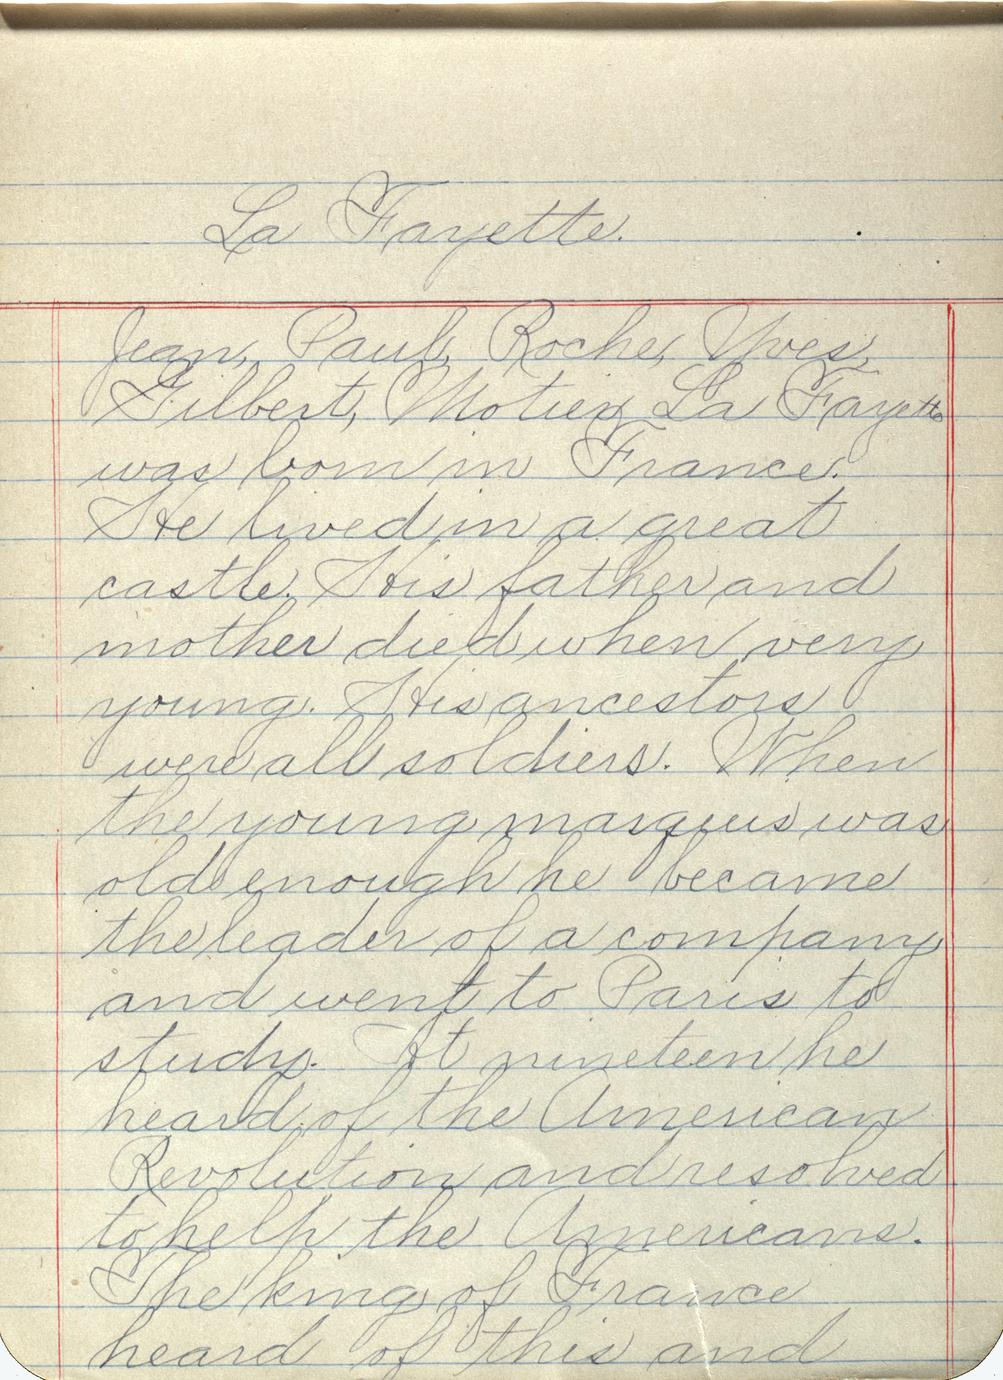 La Fayette.
Jean, Paul, Roche, Yves,
Gilbert, Motier, La Fayette
was born in France.
He lived in a great
castle. His father and
mother died when very
young. His ancestors
were all soldiers. When
the young marquis was
old enough he became
the leader of a company
and went to Paris to
study. At nineteen he
heard of the American
Revolution and resolved
to help the Americans.
The king of France
heard of this and